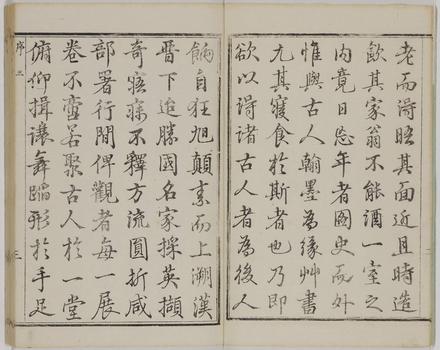 老而得晤其面近且時造
飲其家翁不能酒一室之
内竟日忘年者國史而外
惟與古人翰墨為緣艸書
尤其寢食於斯者也乃即
欲以得諸古人者為後人
餉自狂旭顛素而上溯漢
晉下迨勝國名家採英擷
奇寤寐不釋方流圓折咸
部署行間俾觀者每一展
卷不啻若聚古人於一堂
俯仰揖讓舞蹈形於手足
序
三